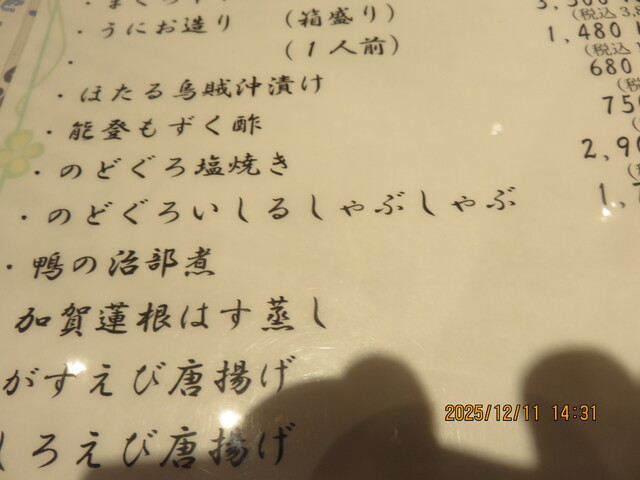 ・うにお造り （箱盛り）
（1人前）
・
・ほたる烏賊沖漬け
・能登もずく酢
・のどぐろ塩焼き
・のどぐろいしるしゃぶしゃぶ
・鴨の治部煮
加賀蓮根はす蒸し
がすえび唐揚げ
しろえび唐揚げ
(税込
1,480
(税込
680
2,9
2025/12/11 14:31